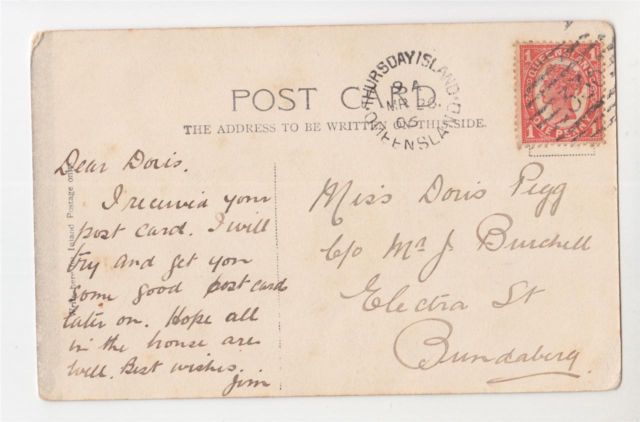 POST CARD
THE ADDRESS TO BE WRITTEN ON THIS SIDE.
THURSDAY ISLAND
9 A
MR 26
06
QUEENSLAND
QUEENSLAND
1 1
ONE PENNY
Inland Postage only.
Dear Doris.
I receivid your
post card. I will
try and get you
some good post card
later on. Hope all
in the house are
well. Best wishes.
Jim
Miss Doris Pegg
c/o Mr J. Burchell
Electra St
Bundaberg